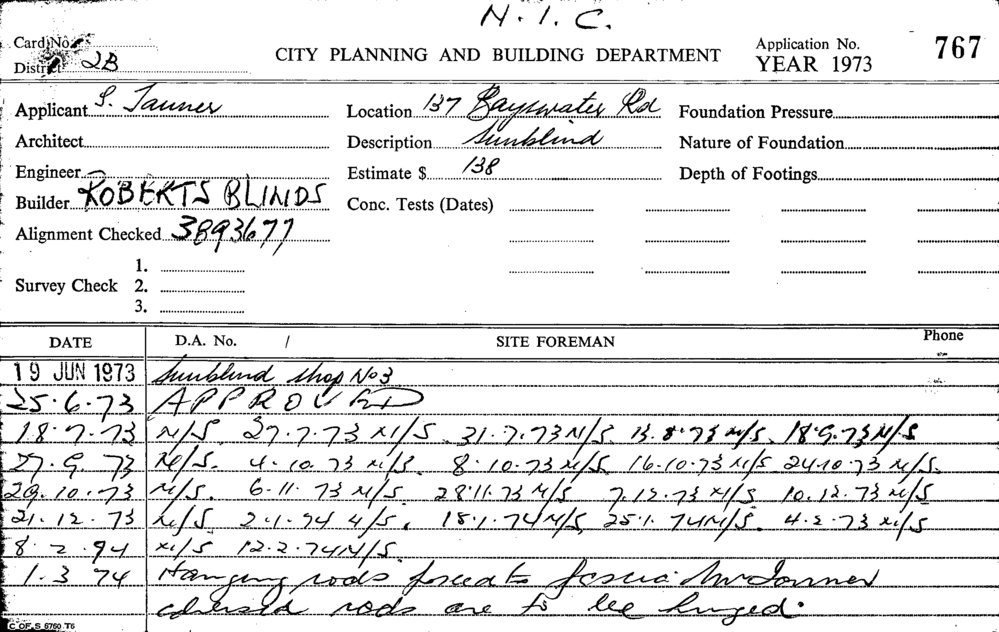 N.I.C.
Card No.
District 2B
CITY PLANNING AND BUILDING DEPARTMENT
Application No. 767
YEAR 1973
Applicant S. Tanner Location 137 Bayswater Rd Foundation Pressure
Architect Description Sunblind Nature of Foundation
Engineer Estimate $ 138 Depth of Footings
Builder ROBERTS BLINDS Conc. Tests (Dates)
Alignment Checked 3893677
1.
Survey Check 2.
3.
DATE D.A. No. / SITE FOREMAN Phone
19 JUN 1973 Sunblind shop No 3
25.6.73 APPROVED
18.7.73 N/S 27.7.73 N/S 31.7.73 N/S 13.8.73 N/S 18.9.73 N/S
27.9.73 N/S. 4.10.73 N/S. 8.10.73 N/S 16.10.73 N/S 24.10.73 N/S.
29.10.73 N/S. 6.11.73 N/S 28.11.73 N/S 7.12.73 N/S 10.12.73 N/S
21.12.73 N/S 2.1.74 N/S. 18.1.74 N/S 25.1.74 N/S. 4.2.73 N/S
8.2.74 N/S 12.2.74 N/S
1.3.74 Hanging rods to fascia. Mr Tanner
rods are to be hinged.
C. OF. S 6760 T6